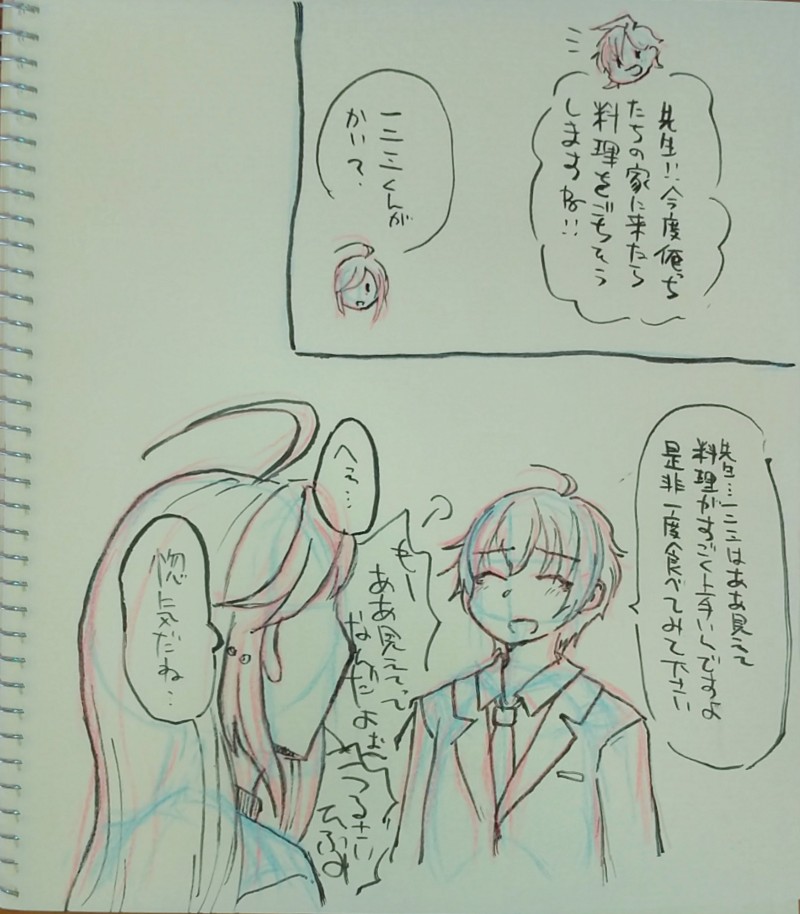 先生!!今度俺っち
たちの家に来たら
料理をごちそう
しますね!!
一二三くんが
かい?
先生…一二三はああ見えて
料理がすごく上手いんですよ
是非一度食べてみて下さい
へぇ…
もー
ああ見えてって
なんだよぉ
うるさい
ひふみ
惚気だね…